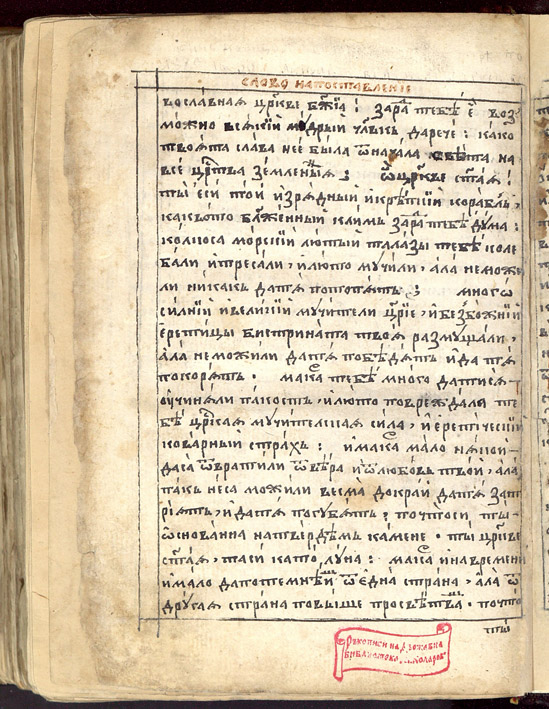 слово на поставленїе
вославная цр҃кве бж҃їа: зара тебѣ є҆ воз
можно всякїй мꙋдрый чл҃вкь да рече: како
твоята слава нее была ѿ начала свѣта на
все црⷭ҇тва земленыѧ: ѽ цр҃кве ст҃аѧ:
ты еси той изрѧдный и крѣпкїй корабль,
каквото бл҃женный климь зара тебѣ дꙋма:
колкоса морскїй лютый талазы тебѣ коле
бали и тресали, и люто мꙋчили, ала не може
ли никакь да тѧ потопѧтъ: многѡ
силнїй и великїй мꙋчители цр҃їе, и безбожнїй
еретицы бистрината твоѧ размꙋщали,
ала не можили да тѧ побѣдѧтъ и да тѧ
покорѧтъ. мака тебѣ много да ти сѧ
ꙋчинѧли пакость, и люто повреждала те
бѣ црⷭ҇кая мꙋчителскаѧ сила, и еретическїй
коварный страхъ: и мака мало нѧкой
да са ѿвратили ѿ вѣра и ѿ любовь твой, ала
такь не са можили весма до край да тѧ зат
рїѧтъ, и да тѧ погꙋбѧтъ: почто си ты
ѡснованна на твердѣмъ камене. ты цр҃кве
ст҃аѧ, та си като лꙋна: мака и на времени
и мало да потемнѣй ѿ една страна, ала ѿ
дрꙋгаѧ страна повыще просвѣтва. почто
ты
Рѫкописи на Державна
Библиотека Коларов